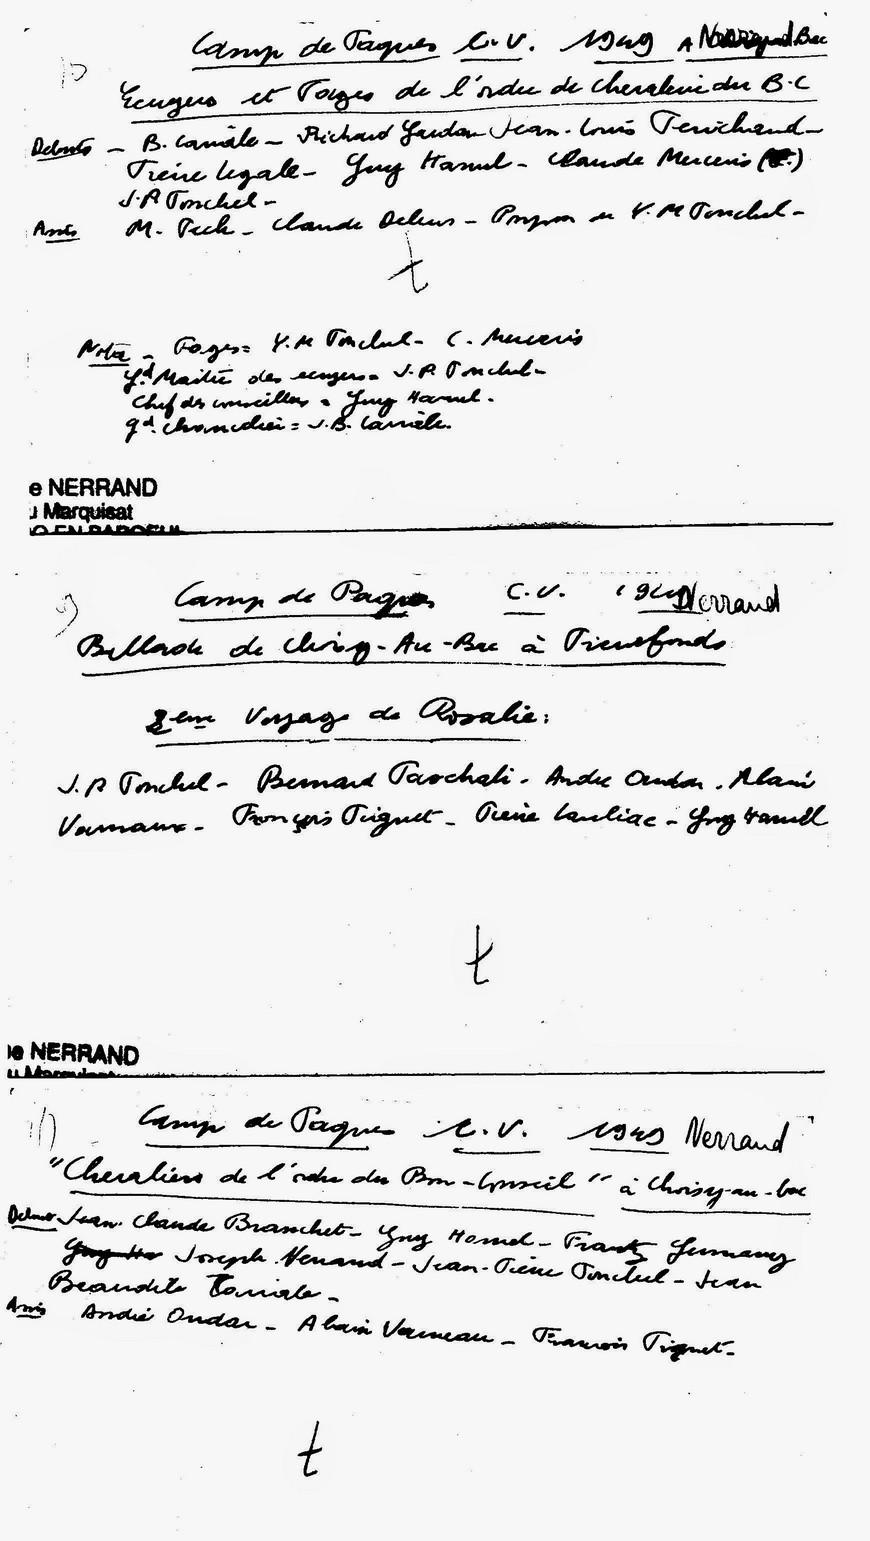 10
Camp de Paques C.V. 1949 A Bac
Ecuyers et Pages de l'ordre de chevalerie du B.C
Debouts - B. Carriale - Richard Gardon Jean-Louis
Pierre Legale - Guy Hamel - Claude Merceris
J.P Tonchel -
Assis M. Pech - Claude Delcus - et Y.M Tonchel -
t
Nota - Pages = Y.M Tonchel - C. Merceris
Gd Maître des ecuyers = J.P Tonchel -
Chef des conseillers = Guy Hamel -
gd chancelier = J.B. Carriale.
e NERRAND
u Marquisat
Q EN BAROEUL
9
Camp de Paques C.V. Nerrand
Ballade de Choisy-Au-Bac à Pierrefonds
2eme Voyage de Rosalie :
J.P Tonchel - Bernard Paschali - André Oudar - Alain
Varneaux - François Tiguet - Pierre Cauliac - Guy Hamell
t
ne NERRAND
u Marquisat
11)
Camp de Paques C.V. 1949 Nerrand
"Chevaliers de l'ordre du Bon-Conseil" à Choisy-au-bac
Debout Jean-Claude Branchet - Guy Hamel - Frantz
Joseph Nerrand - Jean-Pierre Tonchel - Jean
Beaudite Carriale -
Assis André Oudar - Alain Varneau - Francois Tiguet -
t